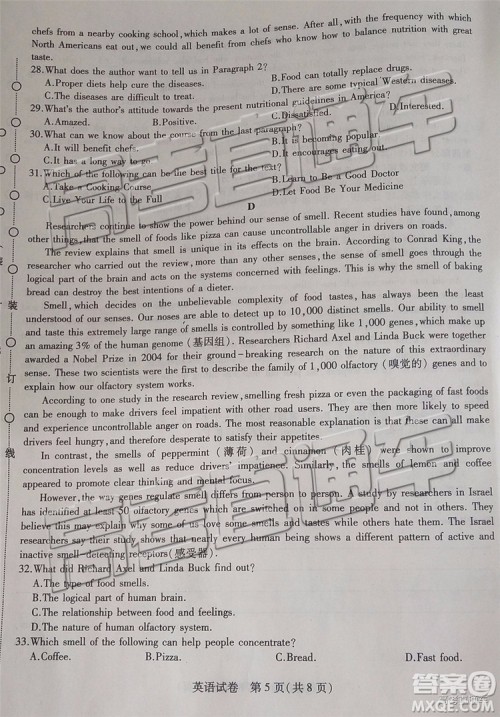 chefs from a nearby cooking school, which makes a lot of sense. After all, with the frequency with which
North Americans eat out, we could all benefit from chefs who know how to balance nutrition with great
taste.
28.What does the author want to tell us in Paragraph 2?
A.Proper diets help cure the diseases. B.Food can totally replace drugs.
C.The diseases are difficult to treat. D.There are some typical Western diseases.
29.What's the author's attitude towards the present nutritional guidelines in America?
A.Amazed. B.Positive. C.Dissatisfied. D.Interested.
30.What can we know about the course from the last paragraph?
A.It will benefit chefs. B.It is financially
C.It has a long way to go. D.It encourages eating
31.Which of the following can be the best title for the text?
A.Take a Cooking Course B.Learn to Be a Good Doctor
C.Live Your Life to the Full D.Let Food Be Your Medicine
D
Researchers continue to show the power behind our sense of smell. Recent studies have found, among
other things, that the smell of foods like pizza can cause uncontrollable anger in drivers on roads.
The review explains that smell is unique in its effects on the brain. According to Conrad King, the
researcher who carried out the review, more than any other senses, the sense of smell goes through the
logical part of the brain and acts on the systems concerned with feelings. This is why the smell of baking
bread can destroy the best intentions of a dieter.
Smell, which decides on the unbelievable complexity of food tastes, has always been the least
understood of our senses. Our noses are able to detect up to 10,000 distinct smells. Our ability to smell
and taste this extremely large range of smells is controlled by something like 1,000 genes, which make up
an amazing 3% of the human genome (基因组). Researchers Richard Axel and Linda Buck were together
awarded a Nobel Prize in 2004 for their ground-breaking research on the nature of this extraordinary
sense. These two scientists were the first to describe the family of 1,000 olfactory (嗅觉的) genes and to
explain how our olfactory system works.
According to one study in the research review, smelling fresh pizza or even the packaging of fast foods
can be enough to make drivers feel impatient with other road users. They are then more likely to speed
and experience uncontrollable anger on roads. The most reasonable explanation is that these can all
make drivers feel desperate to satisfy their appetites.
In contrast, the smells of peppermint (薄荷) and cinnamon (肉桂) were shown to improve
concentration levels as well as reduce drivers' impatience. Similarly, the smells of lemon and coffee
appeared to promote clear thinking and mental focus.
However, the way genes regulate smell differs from person to person. A study by researchers in Israel
has identified at least 50 olfactory genes which are switched on in some people and not in others. They
believe this may explain why some of us love some smells and tastes while others hate them. The Israel
researchers say their study shows that nearly every human being shows a different pattern of active and
inactive smell-detecting receptors(感受器).
32.What did Richard Axel and Linda Buck find out?
A.The type of food smells.
B.The logical part of human brain.
C.The relationship between food and feelings.
D.The nature of human olfactory system.
33.Which smell of the following can help people concentrate?
A.Coffee. B.Pizza. C.Bread. D.Fast food.
英语试卷 第 5 页(共 8 页)
装
订
线
高考直通车
高考直通车
MXQE.COM